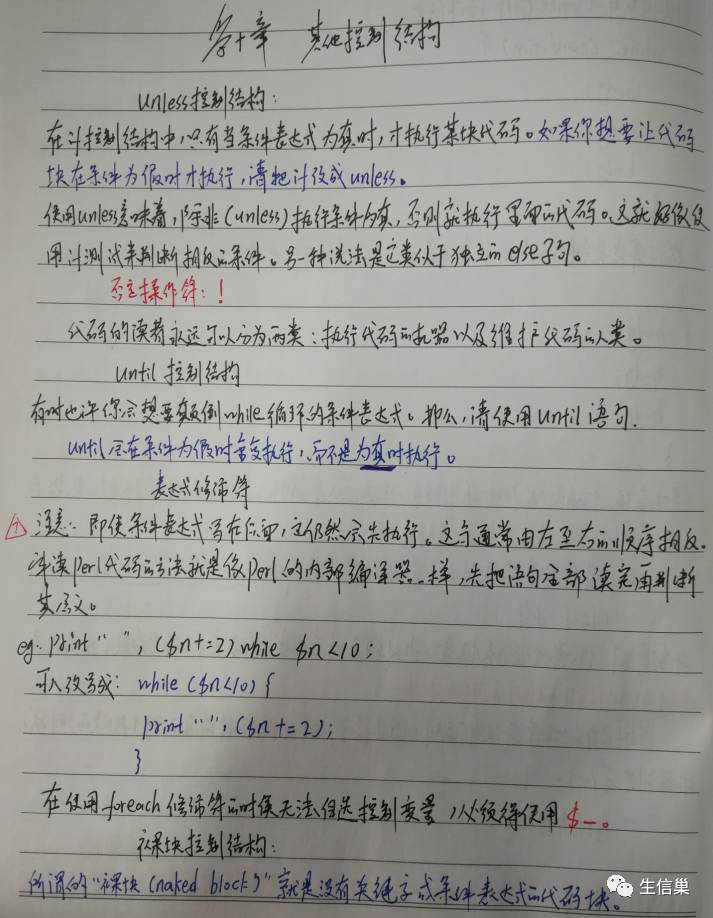 第十章 其他控制结构
unless控制结构：
在if控制结构中，只有当条件表达式为真时，才执行某块代码。如果你想要让代码
块在条件为假时才执行，请把if改成unless。
使用unless意味着，除非(unless)执行条件为真，否则就执行里面的代码。这就好像使
用if测试来判断相反的条件。另一种说法是它类似于独立的else子句。
否定操作符：！
代码的读者永远可以分为两类：执行代码的机器以及维护代码的人类。
until 控制结构
有时也许你会想要颠倒while循环的条件表达式。那么，请使用until语句.
until会在条件为假时重复执行，而不是为真时执行。
表达式修饰符
注意：即使条件表达式写在后面，它仍然会先执行。这与通常由左至右的顺序相反。
读perl代码的方法就是像perl的内部编译器一样，先把语句全部读完再判断
其含义。
eg: print“ ”, ($n+=2) while $n<10;
可以改写成： while ($n<10) {
print “ ”, ($n += 2);
}
在使用foreach修饰符的时候无法自选控制变量，必须得使用$_。
裸块控制结构：
所谓的“裸块(naked block)”就是没有关键字或条件表达式的代码块。
生信巢